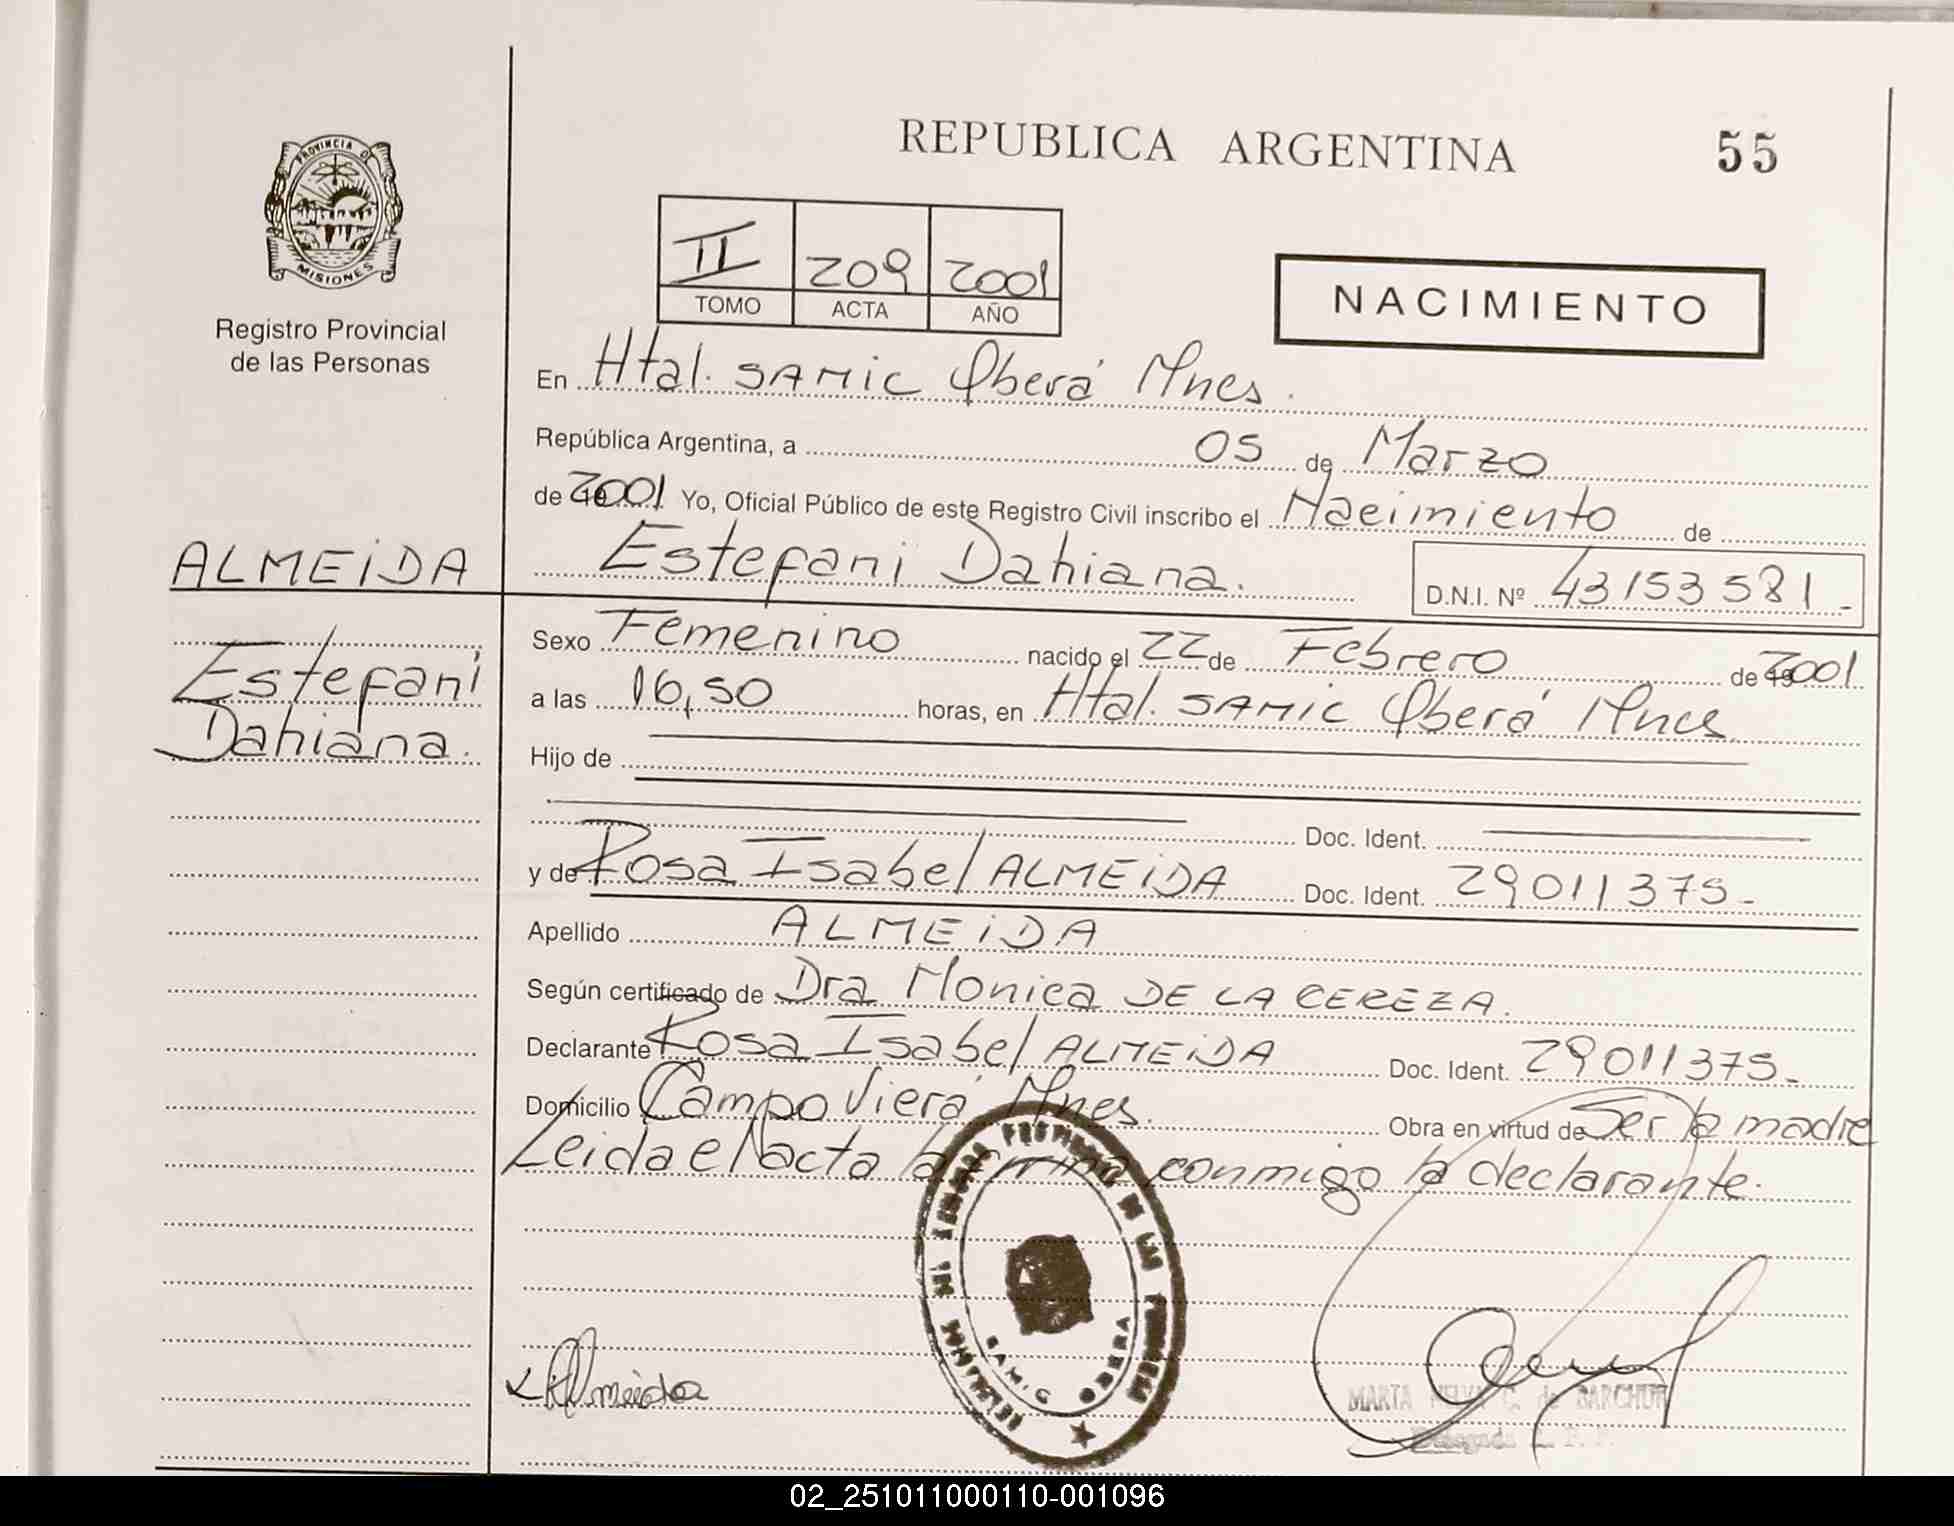 REPUBLICA ARGENTINA
55
PROVINCIA DE
MISIONES
Registro Provincial
de las Personas
II 209 2001
TOMO ACTA AÑO
NACIMIENTO
En Htal. SAMIC Oberá Mnes.
República Argentina, a 05 de Marzo
de 2001 Yo, Oficial Público de este Registro Civil inscribo el Nacimiento de
Estefani Dahiana. D.N.I. Nº 43153581-
ALMEIDA
Estefani
Dahiana.
Sexo Femenino nacido el 22 de Febrero de 2001
a las 16,50 horas, en Htal. SAMIC Oberá Mnes
Hijo de
Doc. Ident.
y de Rosa Isabel ALMEIDA Doc. Ident. 29011375-
Apellido ALMEIDA
Según certificado de Dra Monica DE LA CEREZA.
Declarante Rosa Isabel ALMEIDA Doc. Ident. 29011375-
Domicilio Campo Viera Mnes. Obra en virtud de Ser la madre
Leida el acta la firma conmigo la declarante.
PROVINCIAL DE LAS PERSONAS
SAMIC OBERA
Almeida
MARTA C. de BARCHUK
Delegada
02_251011000110-001096